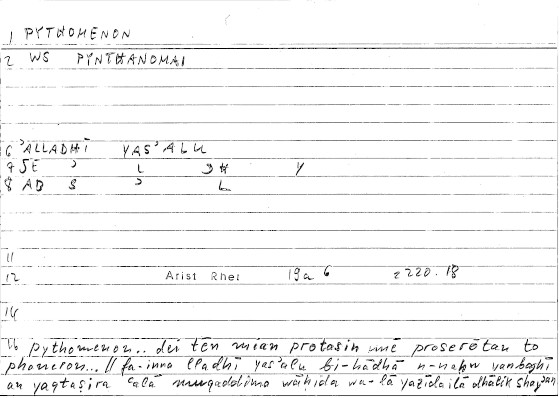 1 PYTHOMENON
2 WS PYNTHANOMAI
6 ʾALLADHĪ YASʾALU
7 SE ʾ L DH Y
8 AB S ʾ L
11
12 Arist Rhet 19a 6 = 220.18
14
16 pythomenon.. dei tēn mian protasin mē proserōtan to
phaneron... // fa-inna lladhī yasʾalu bi-hādhā n-naḥw yanbaghī
an yaqtaṣira ʿalā muqaddima wāḥida wa-lā yazīda ilā dhālik shayʾan